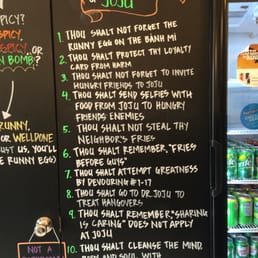 OF JOJU
1. THOU SHALT NOT FORGET THE
RUNNY EGG ON THE BANH MI
2. THOU SHALT PROTECT THY LOYALTY
CARD FROM HARM
3. THOU SHALT NOT FORGET TO INVITE
HUNGRY FRIENDS TO JOJU
4. THOU SHALT SEND SELFIES WITH
FOOD FROM JOJU TO HUNGRY
FRIENDS ENEMIES
5. THOU SHALT NOT STEAL THY
NEIGHBOR'S FRIES
6. THOU SHALT REMEMBER, "FRIES
BEFORE GUYS"
7. THOU SHALT ATTEMPT GREATNESS
BY DEVOURING #1-17
8. THOU SHALT GO TO DR. JOJU TO
TREAT HANGOVERS
9. THOU SHALT REMEMBER, "SHARING
IS CARING" DOES NOT APPLY
AT JOJU
10. THOU SHALT CLEANSE THE MIND,
BODY AND SOUL WITH
PICY?
SPICY,
SPICY...OR
N BOMB?
RUNNY.
OR WELLDONE
UST US, YOU'LL
E RUNNY EGG)
NOT A